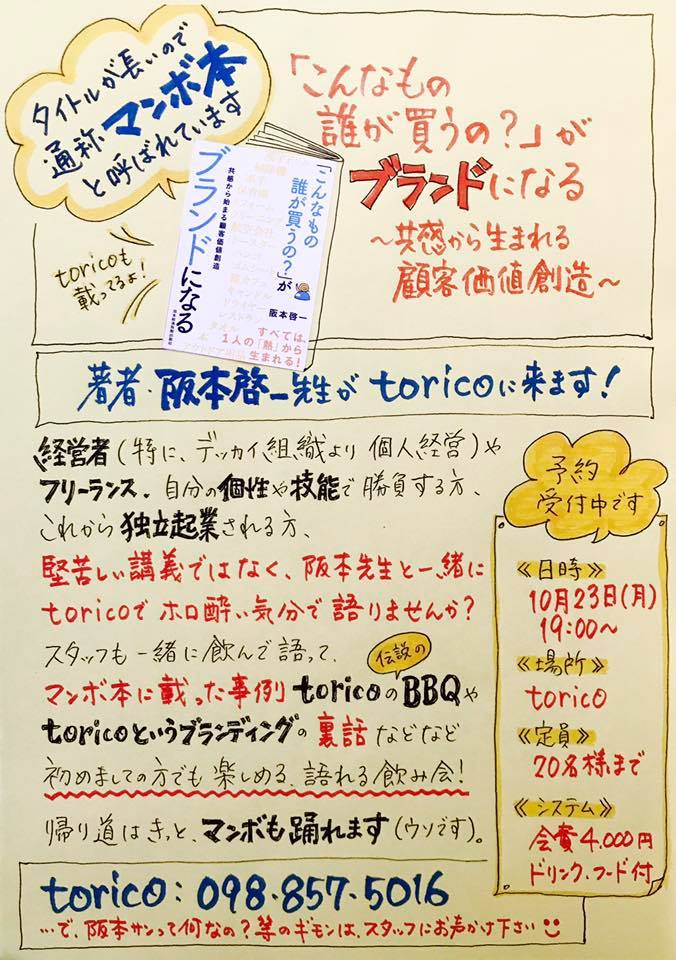 タイトルが長いので
通称 マンボ本
と呼ばれています
「こんなもの
誰が買うの?」が
ブランドになる
~共感から生まれる
顧客価値創造~
「こんなもの
誰が買うの?」が
ブランドになる
共感から始まる顧客価値創造
阪本啓一
すべては、
1人の「熱」から
生まれる!
toricoも
載ってるよ!
著者・阪本啓一先生が toricoに来ます!
経営者(特に、デッカイ組織より 個人経営)や
フリーランス、自分の個性や技能で勝負する方、
これから独立起業される方、
堅苦しい講義ではなく、阪本先生と一緒に
toricoで ホロ酔い気分で語りませんか?
スタッフも一緒に飲んで語って、
伝説の
マンボ本に載った事例 toricoのBBQや
toricoというブランディングの裏話 などなど
初めましての方でも楽しめる、語れる飲み会!
帰り道はきっと、マンボも踊れます(ウソです)。
予約
受付中です
《日時》
10月23日(月)
19:00~
《場所》
torico
《定員》
20名様まで
《システム》
会費4.000円
ドリンク、フード付
torico:098-857-5016
…で、阪本サンって何なの?等のギモンは、スタッフにお声かけ下さい